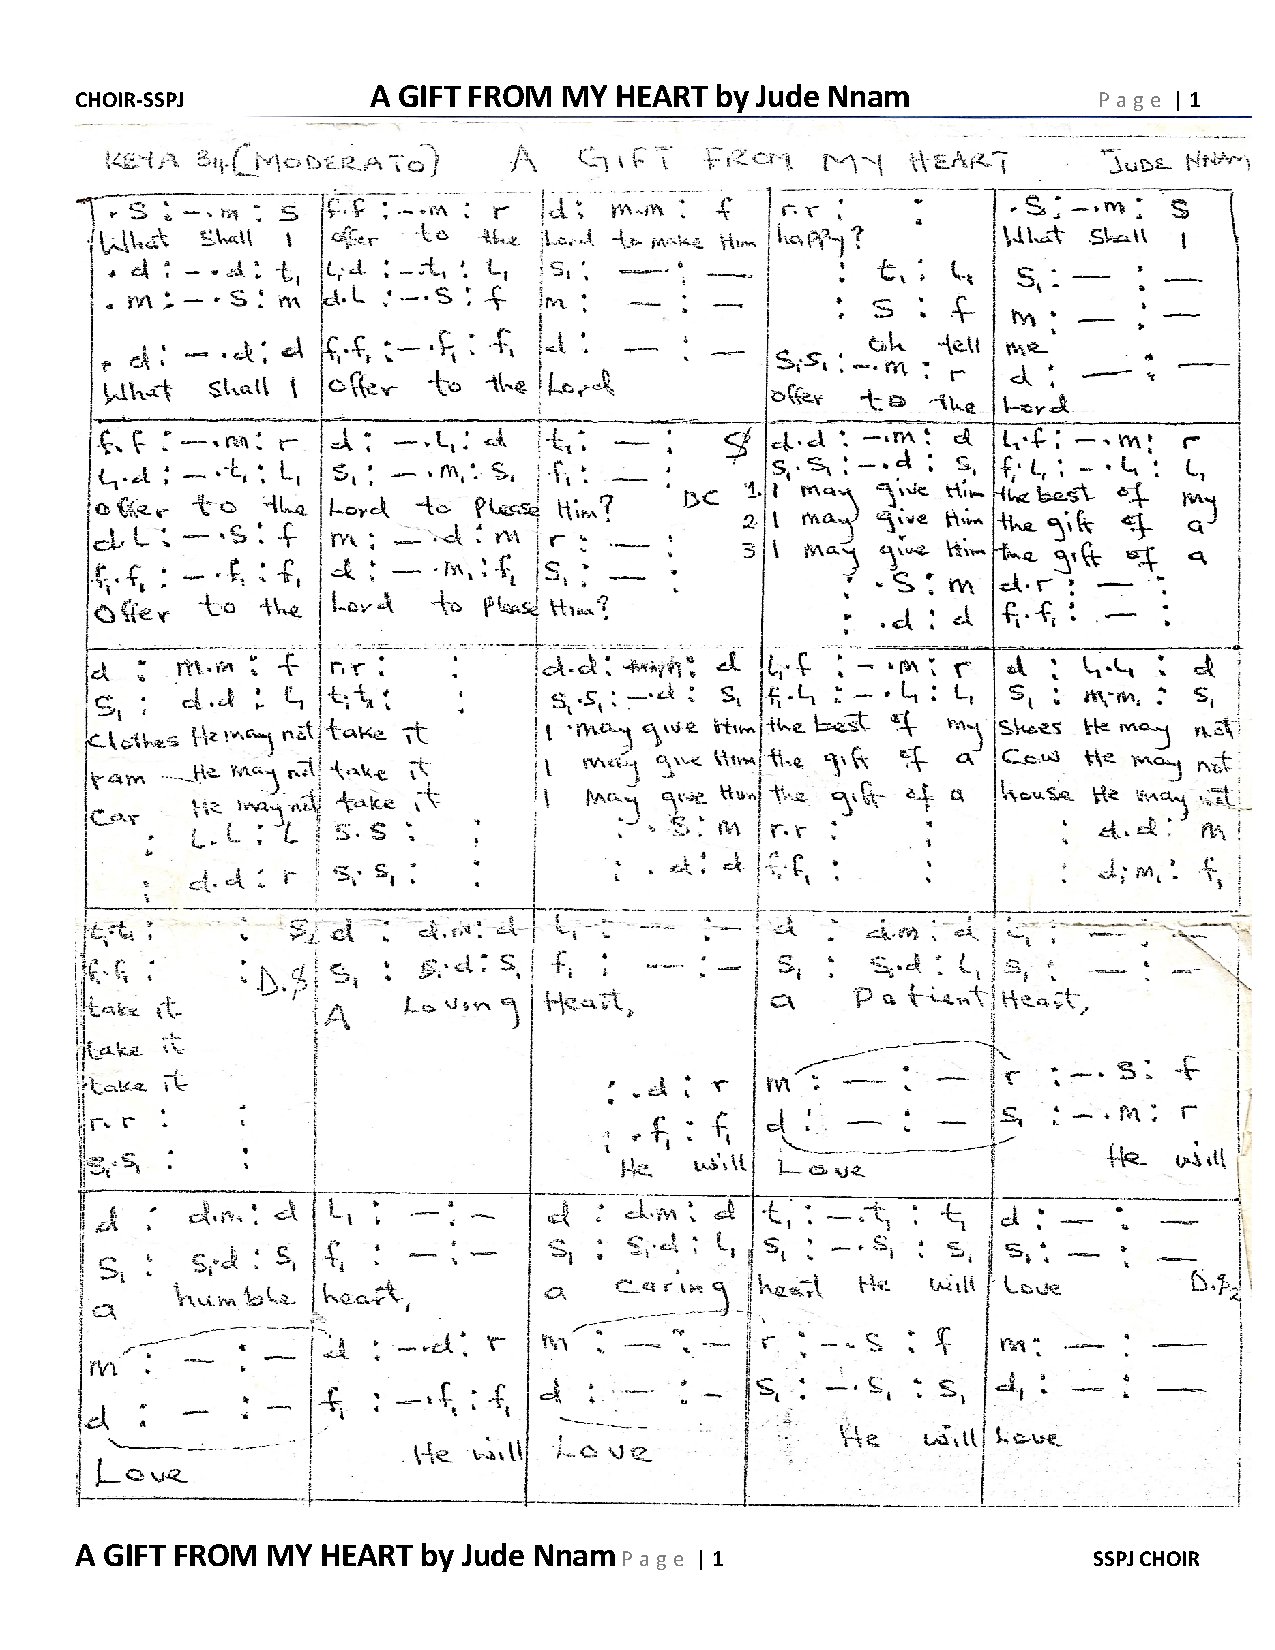 CHOIR-SSPJ A GIFT FROM MY HEART by Jude Nnam Page | 1
KEY A 3/4 (MODERATO) A GIFT FROM MY HEART JUDE NNAM
. s : – . m : s | f.f : – . m : r | d : m.m : f | r.r : : | . s : – . m : s
What shall I | offer to the | Lord to make Him | happy? | What shall I
. d : – . d : t₁ | l₁.d : – . t₁ : l₁ | s₁ : — : — | : t₁ : l₁ | s₁ : — : —
. m : – . s : m | d.l : – . s : f | m : — : — | : s : f | m : — : —
oh tell | me
. d : – . d : d | f₁.f₁ : – . f₁ : f₁ | d : — : — | s₁.s₁ : – . m : r | d : — : —
What shall I | offer to the | Lord | offer to the | Lord
f.f : – . m : r | d : – . l₁ : d | t₁ : — : | d.d : – . m : d | l₁.f : – . m : r
l₁.d : – . t₁ : l₁ | s₁ : – . m₁ : s₁ | f₁ : — : | s₁.s₁ : – . d : s₁ | f₁.l₁ : – . l₁ : l₁
offer to the | Lord to Please | Him? DC | 1. I may give Him | the best of my
2 I may give Him | the gift of a
3 I may give Him | the gift of a
d.l : – . s : f | m : – . d : m | r : — : | : . s : m | d.r : — :
f₁.f₁ : – . f₁ : f₁ | d : – . m₁ : f₁ | s₁ : — : | : . d : d | f₁.f₁ : — :
Offer to the | Lord to Please | Him?
d : m.m : f | r.r : : | d.d : : d | l₁.f : – . m : r | d : l₁.l₁ : d
s₁ : d.d : l₁ | t₁.t₁ : : | s₁.s₁ : – . d : s₁ | f₁.l₁ : – . l₁ : l₁ | s₁ : m₁.m₁ : s₁
Clothes He may not | take it | I may give Him | the best of my | Shoes He may not
ram He may not | take it | I may give Him | the gift of a | Cow He may not
Car He may not | take it | I may give Him | the gift of a | house He may not
: l.l : l | s.s : : | : . s : m | r.r : : | : d.d : m
: d.d : r | s₁.s₁ : : | : . d : d | f₁.f₁ : : | : d.m₁ : f₁
t₁.t₁ : : S₂ | d : d.m : d | l₁ : — : — | d : d.m : d | l₁ : — : —
f₁.f₁ : : D.S | s₁ : s₁.d : s₁ | f₁ : — : — | s₁ : s₁.d : l₁ | s₁ : — : —
take it | A Loving | Heart, | a Patient | Heart,
take it
take it
r.r : : | : . d : r | m : — : — | r : – . s : f
s₁.s₁ : : | : . f₁ : f₁ | d : — : — | s₁ : – . m : r
He will | Love | He will
d : d.m : d | l₁ : — : — | d : d.m : d | t₁ : – . t₁ : t₁ | d : — : —
s₁ : s₁.d : s₁ | f₁ : — : — | s₁ : s₁.d : l₁ | s₁ : – . s₁ : s₁ | s₁ : — : —
a humble | heart, | a caring | heart He will | Love D.S₂
m : — : — | d : – . d : r | m : — : — | r : – . s : f | m : — : —
d : — : — | f₁ : – . f₁ : f₁ | d : — : — | s₁ : – . s₁ : s₁ | d₁ : — : —
Love | He will | Love | He will | Love
A GIFT FROM MY HEART by Jude Nnam Page | 1 SSPJ CHOIR